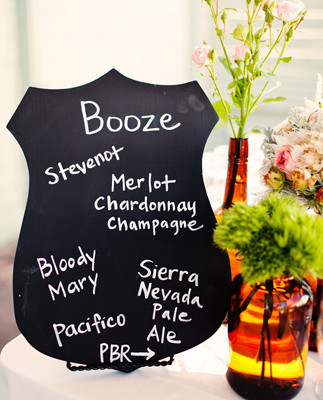 Booze
Stevenot
Merlot
Chardonnay
Champagne
Bloody
Mary
Sierra
Nevada
Pale
Ale
Pacifico
PBR→